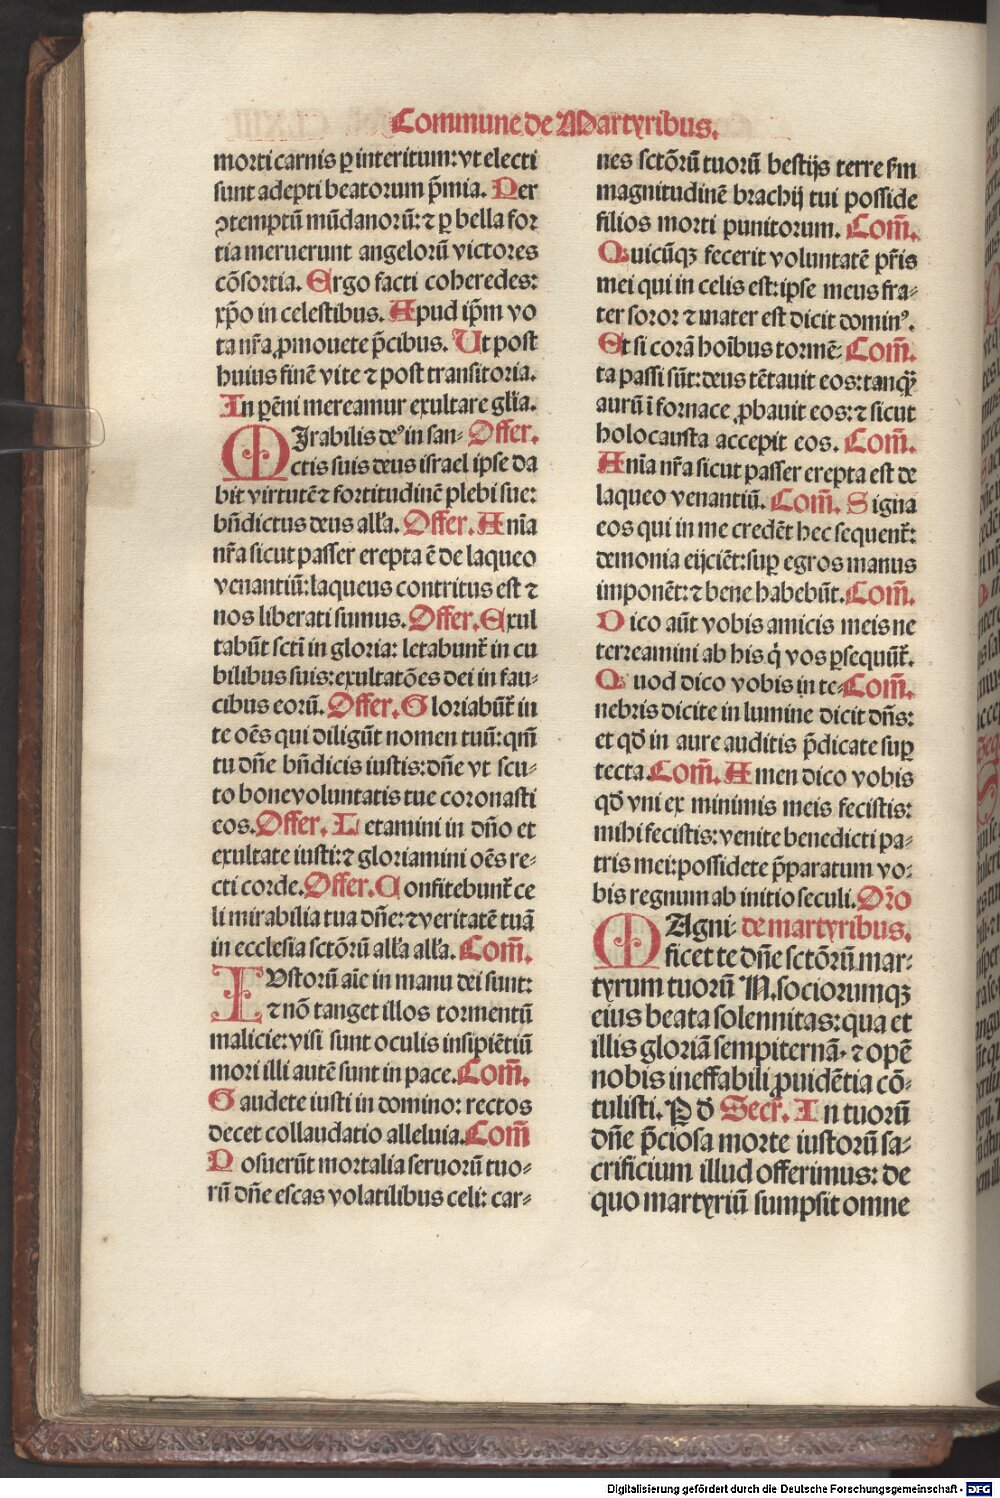 Commune de Martyribus.
morti carnis ꝑ interitum: vt electi
sunt adepti beatorum p̄mia. Per
ꝯtemptū mūdanorū: ⁊ ꝑ bella for
tia meruerunt angelorū victores
cōsortia. Ergo facti coheredes:
xp̄o in celestibus. Apud ip̄m vo
ta nr̄a ꝓmouete p̄cibus. Ut post
huius finē vite ⁊ post transitoria.
In ꝑēni mereamur exultare gl̄ia.
MIrabilis deꝰ in san⸗ Offer.
ctis suis deus israel ipse da
bit virtutē ⁊ fortitudinē plebi sue:
bn̄dictus deus all'a. Offer. Anīa
nr̄a sicut passer erepta ē de laqueo
venantiū: laqueus contritus est ⁊
nos liberati sumus. Offer. Exul
tabūt scti in gloria: letabunt̄ in cu
bilibus suis: exultatōes dei in fau⸗
cibus eorū. Offer. Gloriabūt̄ in
te oēs qui diligūt nomen tuū: qm̄
tu dn̄e bn̄dicis iustis: dn̄e vt scu⸗
to bone voluntatis tue coronasti
eos. Offer. Letamini in dn̄o et
exultate iusti: ⁊ gloriamini oēs re⸗
cti corde. Offer. Confitebunt̄ ce
li mirabilia tua dn̄e: ⁊ veritatē tuā
in ecclesia sctōrū all'a all'a. Com̄.
IUstorū aīe in manu dei sunt:
⁊ nō tanget illos tormentū
malicie: visi sunt oculis insipiētiū
mori illi autē sunt in pace. Com̄.
Gaudete iusti in domino: rectos
decet collaudatio alleluia. Com̄
Posuerūt mortalia seruorū tuo⸗
rū dn̄e escas volatilibus celi: car⸗
nes sctōrū tuorū bestijs terre sm̄
magnitudinē brachij tui posside
filios morti punitorum. Com̄.
Quicūqꝫ fecerit voluntatē pr̄is
mei qui in celis est: ipse meus fra⸗
ter soror ⁊ mater est dicit dominꝰ.
Et si corā hoībus tormē⸗ Com̄.
ta passi sūt: deus tētauit eos: tanqꝫ̄
aurū ī fornace ꝓbauit eos: ⁊ sicut
holocausta accepit eos. Com̄.
Anīa nr̄a sicut passer erepta est de
laqueo venantiū. Com̄. Signa
eos qui in me credēt hec sequent̄:
demonia eijciēt: suꝑ egros manus
imponēt: ⁊ bene habebūt. Com̄.
Dico aūt vobis amicis meis ne
terreamini ab his q̄ vos ꝑsequūt̄.
Quod dico vobis in te⸗ Com̄.
nebris dicite in lumine dicit dn̄s:
et qd̄ in aure auditis p̄dicate suꝑ
tecta. Com̄. Amen dico vobis
qd̄ vni ex minimis meis fecistis:
mihi fecistis: venite benedicti pa⸗
tris mei: possidete p̄paratum vo⸗
bis regnum ab initio seculi. Or̄o
MAgni⸗ de martyribus.
ficet te dn̄e sctōrū mar⸗
tyrum tuorū N. sociorumqꝫ
eius beata solennitas: qua et
illis gloriā sempiternā. ⁊ opē
nobis ineffabili ꝓuidētia cō⸗
tulisti. P d̄ Secr̄. In tuorū
dn̄e p̄ciosa morte iustorū sa⸗
crificium illud offerimus: de
quo martyriū sumpsit omne
Digitalisierung gefördert durch die Deutsche Forschungsgemeinschaft - DFG